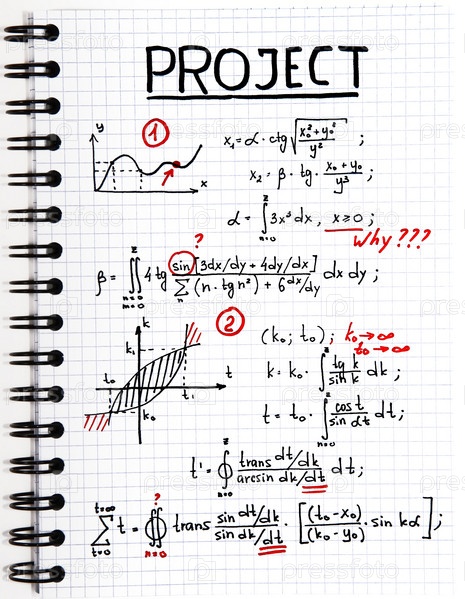 PROJECT
y
1
x
x₁ = α · ctg √((x₀² + y₀²)/y²) ;
x₂ = β · tg · (x₀ + y₀)/y³ ;
α = ∫ₙ₌₀ᶻ 3x³ dx , x ≥ 0 ;
why???
?
β = ∬ₙ₌₀ ₘ₌₀ᶻ 4 tg sin [3dx/dy + 4dy/dx] / (∑ₙ (n · tg n²) + 6 dx/dy) dx dy ;
k
2
k₁
t₀
t₁
t
k₀
(k₀; t₀) ; k₀ → ∞
t₀ → ∞
k = k₀ · ∫ tg k / sin k dk ;
t = t₀ · ∫ₙ₌₀ᶻ cos t / sin αt dt ;
t' = ∮ₙ₌₀ᶻ (trans dt/dk) / (arcsin dk/dt) dt ;
?
∑ₜ₌₀ᵗ⁼∞ t = ∯ₙ₌₀ trans (sin dt/dk) / (sin dk/dt) · [(t₀ - x₀)/(k₀ - y₀) · sin kα] ;
pressfoto